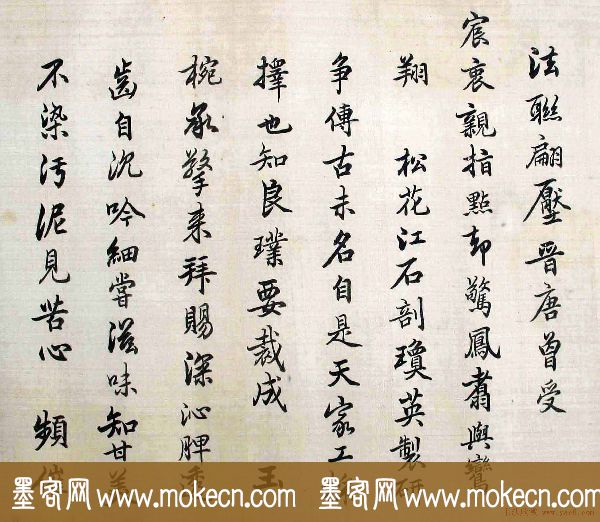 法聯翩壓晉唐曾受
宸衷親指點却驚鳳翥與鸞
翔 松花江石剖瓊英製研
爭傳古未名自是天家工
擇也知良璞要裁成 玉
椀承擎来拜賜深沁脾
齒自沉吟細嘗滋味知甘
不染污泥見苦心 頻
墨客网 www.mokecn.com 墨客网 www.mokecn.com